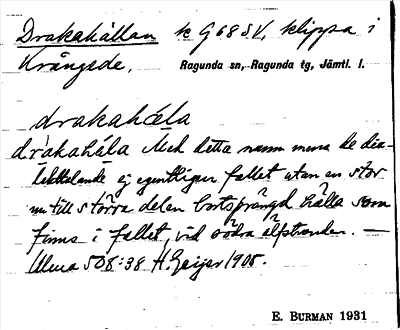 Drakahällan k G 68 SV, klippa i
Krångede. Ragunda sn, Ragunda tg, Jämtl. l.
drakahäla
drakahála Med detta namn mena de dia-
lekttalande ej egentligen fallet utan en stor
nu till större delen bortsprängd hälla som
finns i fallet, vid södra älfstranden. —
508:38 H. Geijer 1908.
E. BURMAN 1931